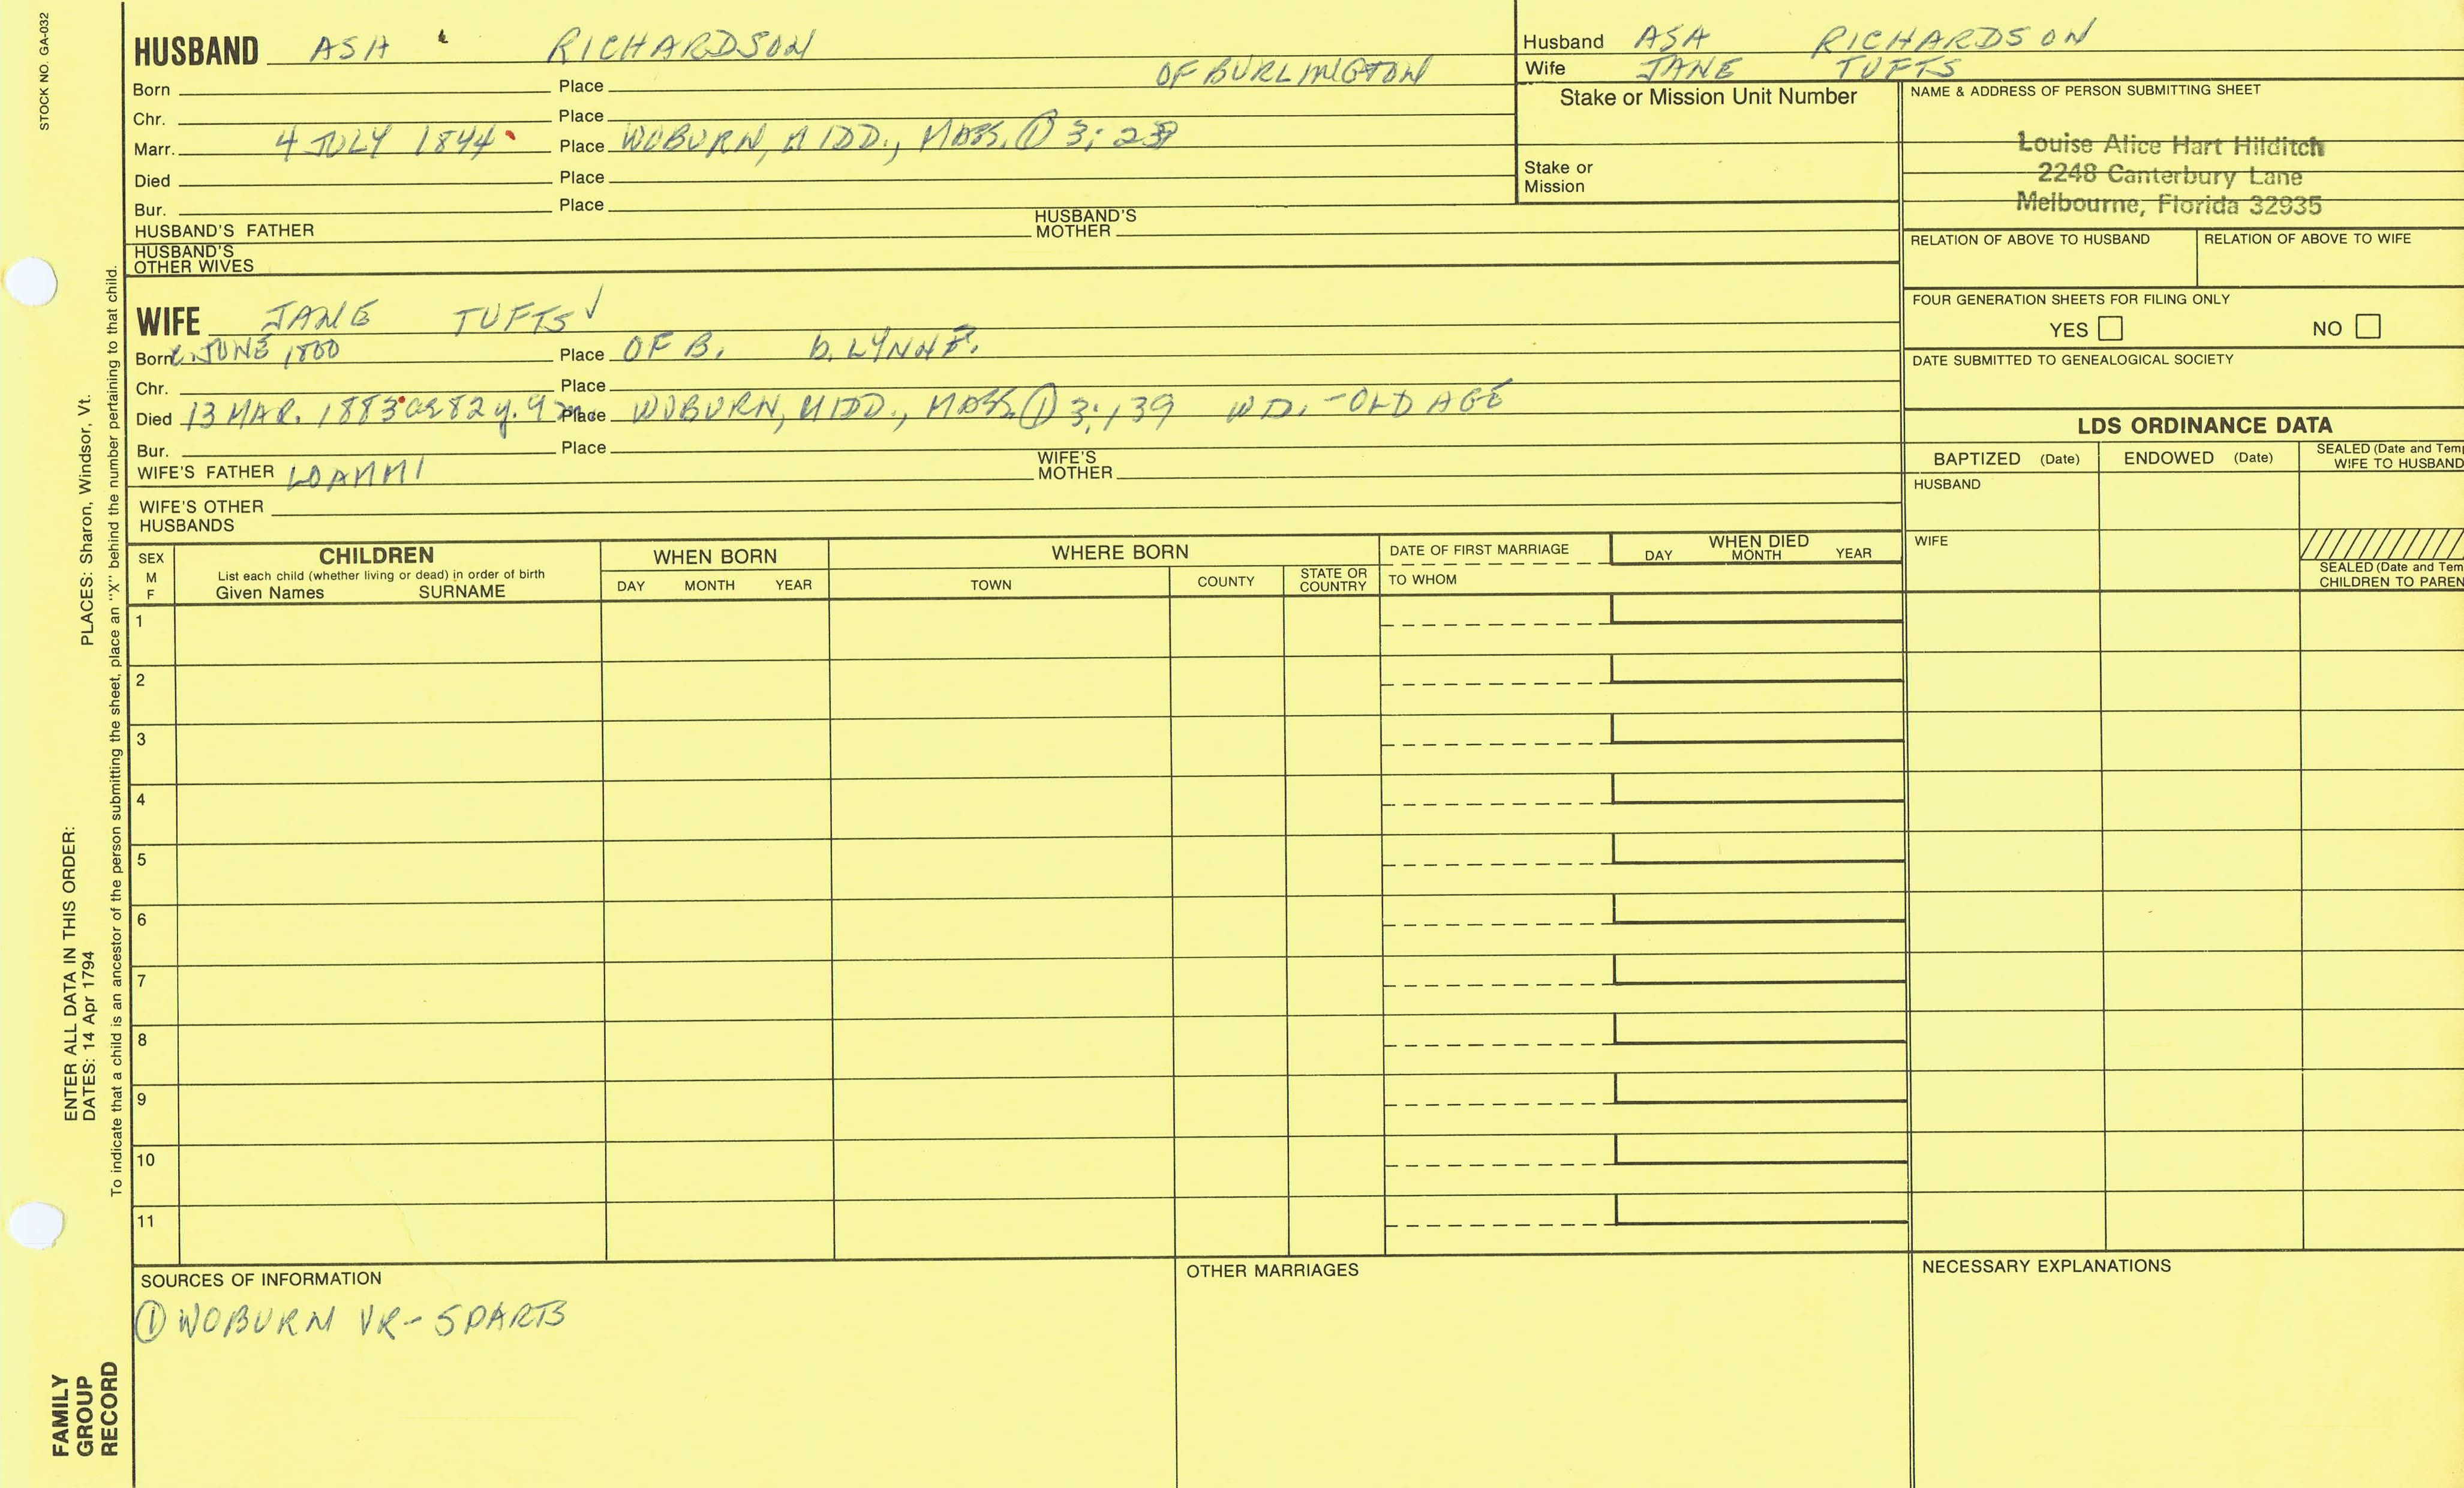 STOCK NO. GA-032
HUSBAND ASA RICHARDSON
OF BURLINGTON
Born Place
Chr. Place
Marr. 4 JULY 1844 Place WOBURN, MIDD., MASS. ① 3:
Died Place
Bur. Place
HUSBAND'S FATHER HUSBAND'S MOTHER
HUSBAND'S OTHER WIVES
Husband ASA RICHARDSON
Wife JANE TUFTS
Stake or Mission Unit Number
Stake or Mission
NAME & ADDRESS OF PERSON SUBMITTING SHEET
Louise Alice Hart Hilditch
2248 Canterbury Lane
Melbourne, Florida 32935
RELATION OF ABOVE TO HUSBAND RELATION OF ABOVE TO WIFE
FOUR GENERATION SHEETS FOR FILING ONLY
YES NO
DATE SUBMITTED TO GENEALOGICAL SOCIETY
WIFE JANE TUFTS ✓
Born JUNE 1800 Place OF B. b. LYNNF.
Chr. Place
Died 13 MAR. 1883 ae 82 y. 9 m Place WOBURN, MIDD., MASS. ① 3:139 WD. - OLD AGE
Bur. Place
WIFE'S FATHER LOAMMI WIFE'S MOTHER
WIFE'S OTHER HUSBANDS
LDS ORDINANCE DATA
BAPTIZED (Date) ENDOWED (Date) SEALED (Date and Tem
WIFE TO HUSBAND
HUSBAND
WIFE
SEALED (Date and Tem
CHILDREN TO PAREN
SEX M F
CHILDREN
List each child (whether living or dead) in order of birth
Given Names SURNAME
WHEN BORN
DAY MONTH YEAR
WHERE BORN
TOWN COUNTY STATE OR COUNTRY
DATE OF FIRST MARRIAGE
TO WHOM
WHEN DIED
DAY MONTH YEAR
1
2
3
4
5
6
7
8
9
10
11
SOURCES OF INFORMATION
① WOBURN VR - 5 PARTS
OTHER MARRIAGES
NECESSARY EXPLANATIONS
ENTER ALL DATA IN THIS ORDER:
DATES: 14 Apr 1794
PLACES: Sharon, Windsor, Vt.
To indicate that a child is an ancestor of the person submitting the sheet, place an "X" behind the number pertaining to that child.
FAMILY
GROUP
RECORD